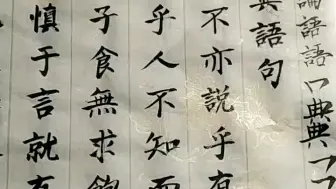 論語語口典典
典語句
不亦説乎有
乎人不知而
子食無求飽
慎于言就有